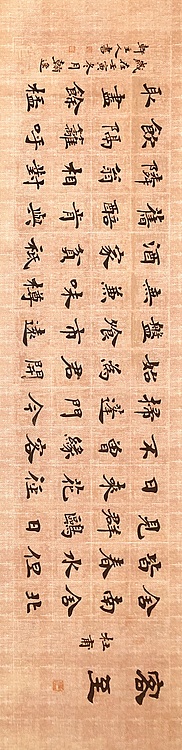 客至
杜甫
舍南舍北
皆春水但
見群鷗日
日來花徑
不曾緣客
掃蓬門今
始為君開
盤飧市遠
無兼味樽
酒家貧祗
舊醅肯與
隣翁相對
飲隔籬呼
取盡餘
歲在壬寅冬月翰逸
軒主人書